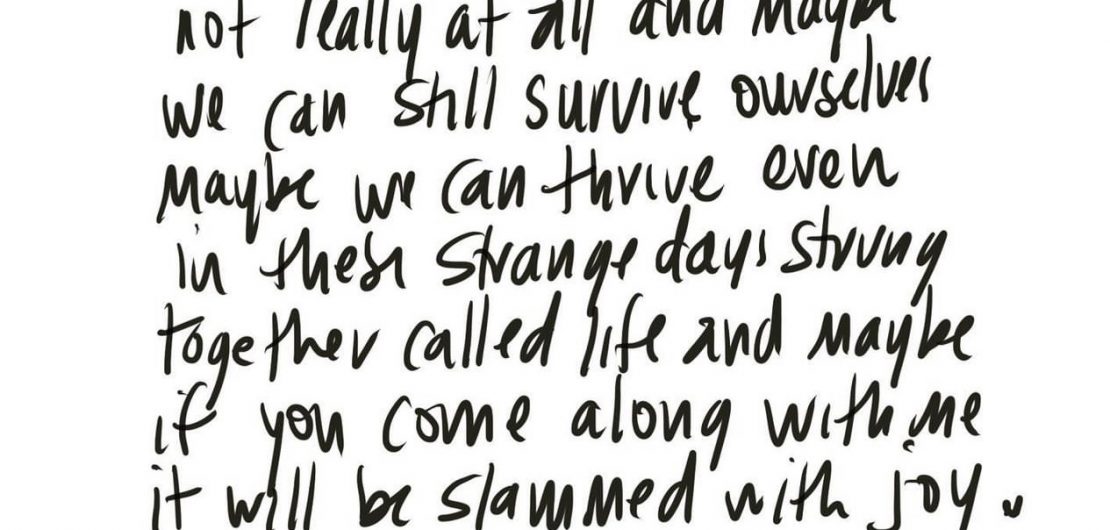 not really at all and maybe
we can still survive ourselves
maybe we can thrive even
in these strange days strung
together called life and maybe
if you come along with me
it will be slammed with joy.